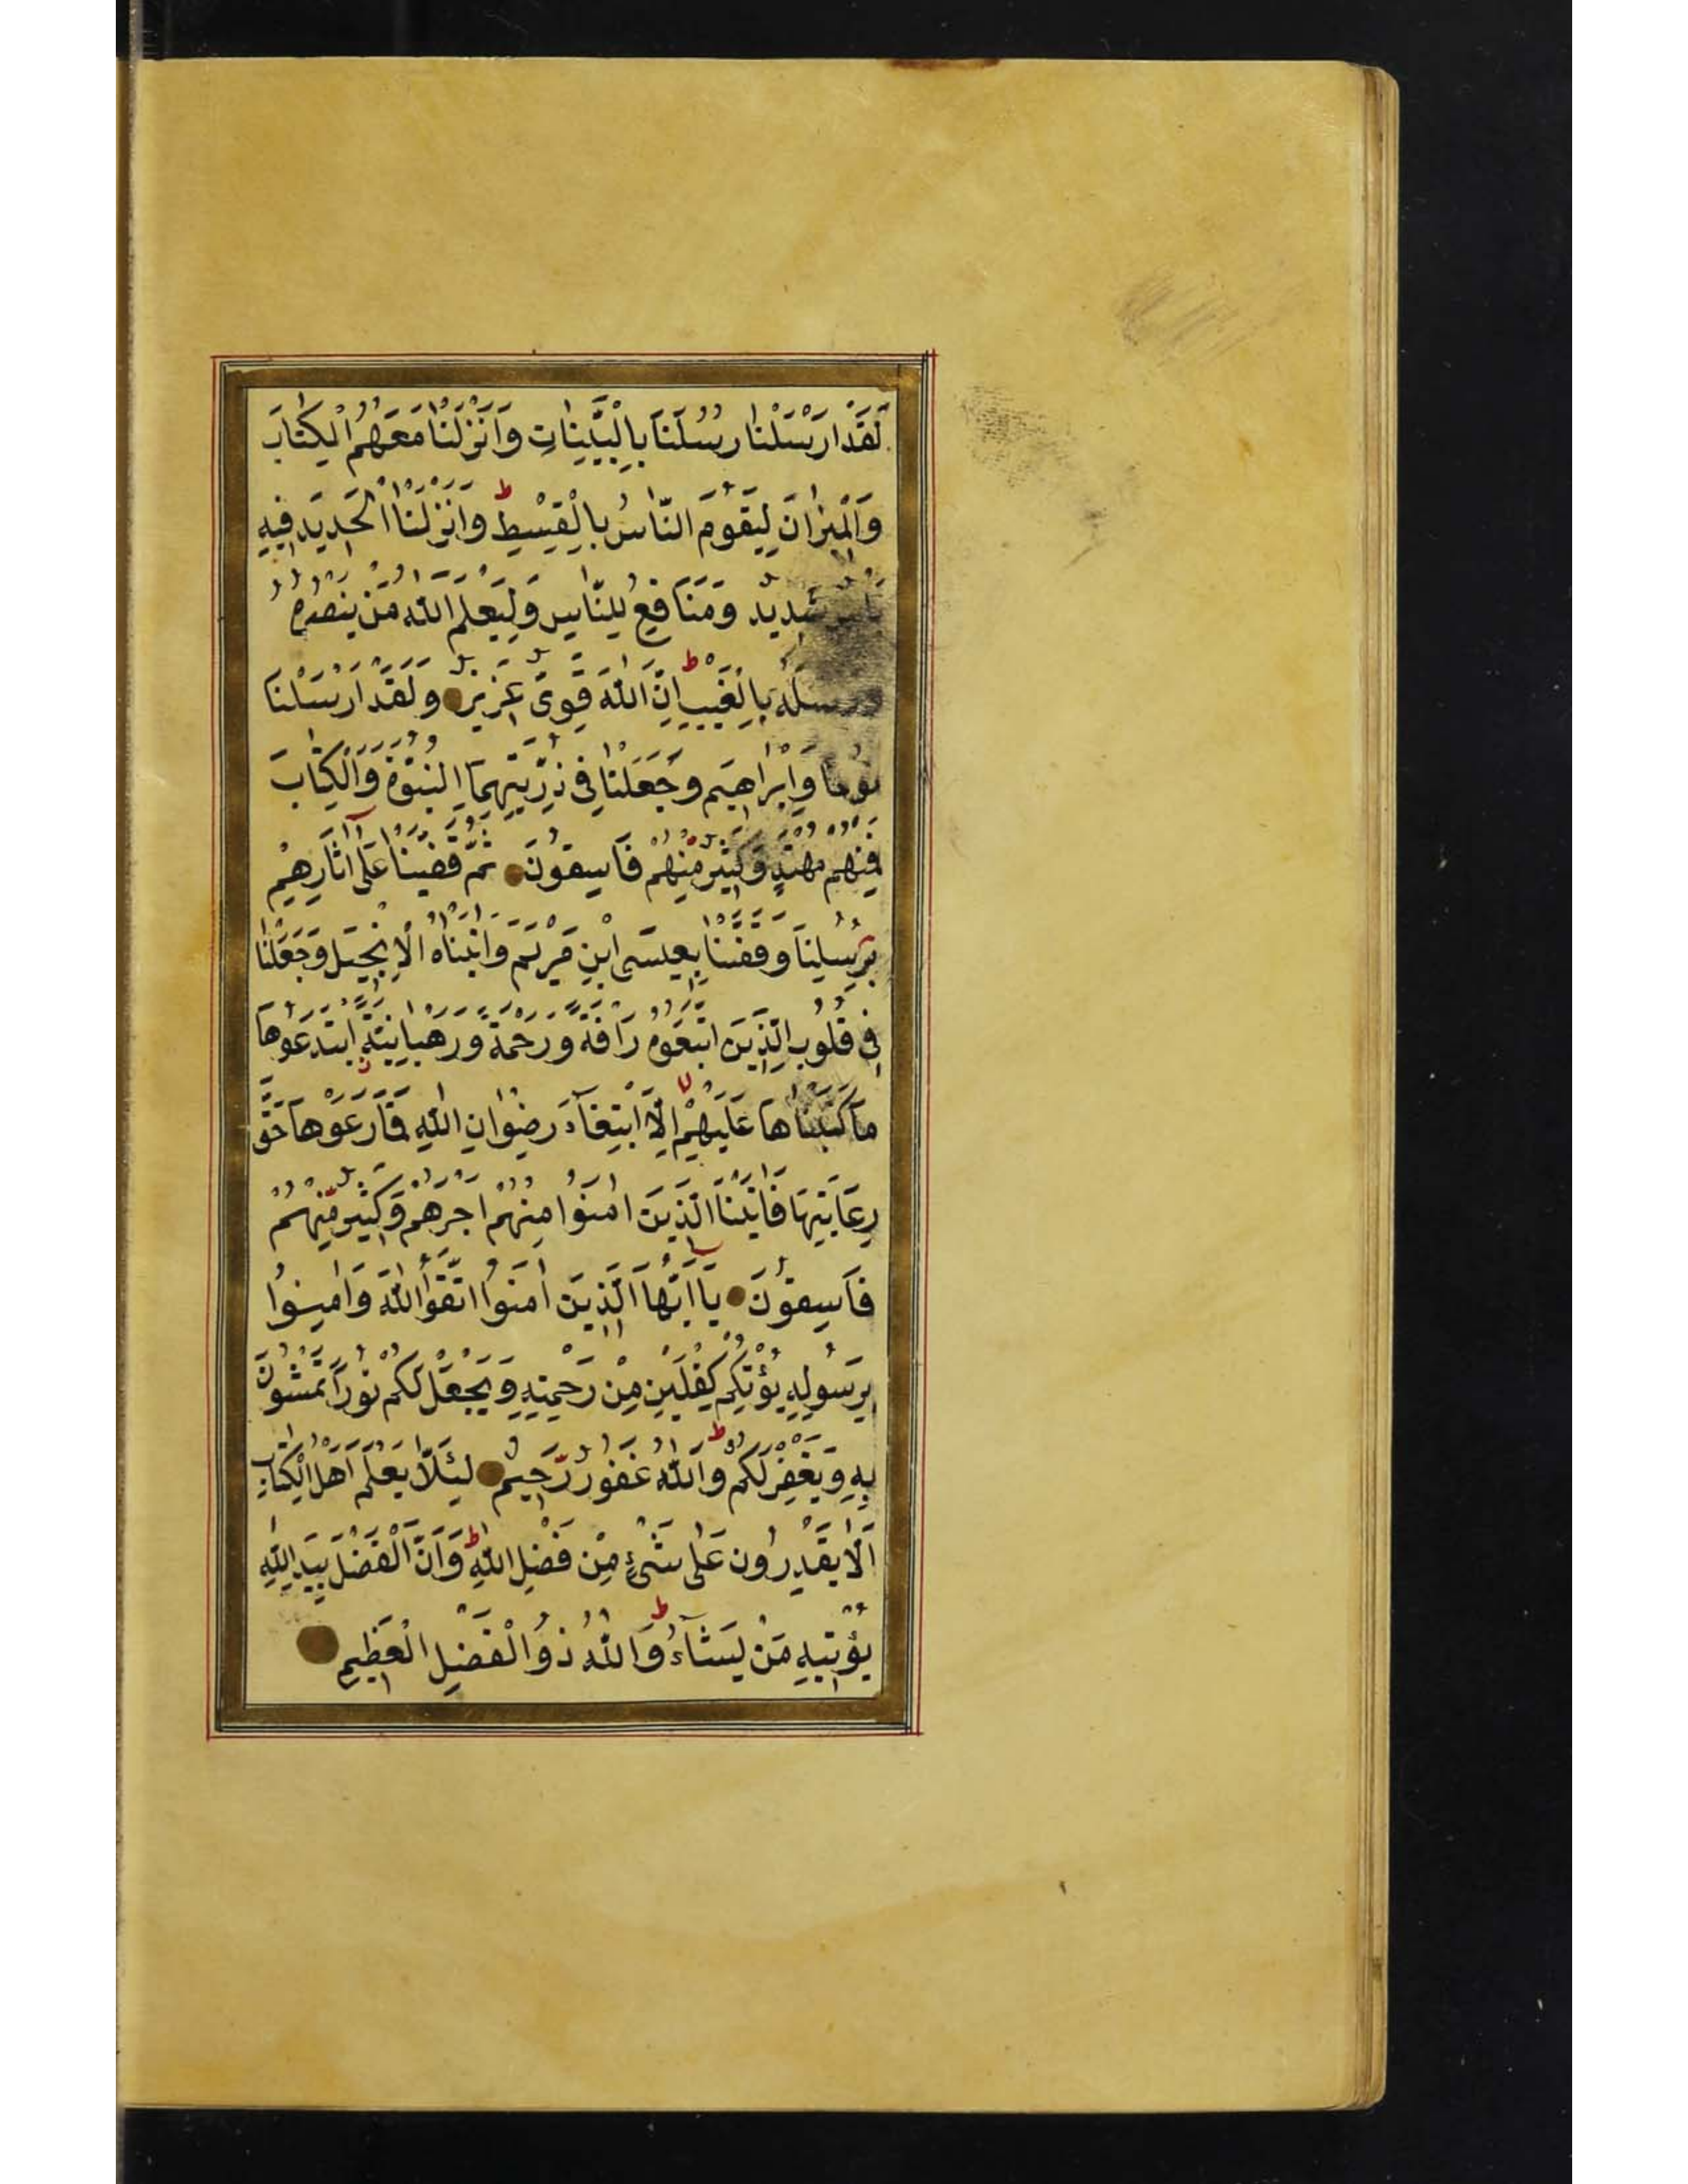 لَقَدْ اَرْسَلْنٰا رُسُلَنَا بِالْبَيِّنٰاتِ وَاَنْزَلْنٰا مَعَهُمُ الْكِتٰابَ
وَالْمِيزٰانَ لِيَقُومَ النّٰاسُ بِالْقِسْطِ ط وَاَنْزَلْنَا الْحَدِيدَ فِيهِ
بَاْسٌ شَدِيدٌ وَمَنَافِعُ لِلنّٰاسِ وَلِيَعْلَمَ اللّٰهُ مَنْ يَنْصُرُهُ
وَرُسُلَهُ بِالْغَيْبِ ط اِنَّ اللّٰهَ قَوِىٌّ عَزِيزٌ وَلَقَدْ اَرْسَلْنَا
نُوحًا وَاِبْرٰاهِيمَ وَجَعَلْنٰا فِى ذُرِّيَّتِهِمَا النُّبُوَّةَ وَالْكِتٰابَ
فَمِنْهُمْ مُهْتَدٍ وَكَثِيرٌ مِنْهُمْ فَاسِقُونَ ثُمَّ قَفَّيْنٰا عَلٰى اٰثَارِهِمْ
بِرُسُلِنَا وَقَفَّيْنٰا بِعِيسَى ابْنِ مَرْيَمَ وَاٰتَيْنٰاهُ الْاِنْجِيلَ وَجَعَلْنٰا
فِى قُلُوبِ الَّذِينَ اتَّبَعُوهُ رَاْفَةً وَرَحْمَةً وَرَهْبَانِيَّةً ابْتَدَعُوهَا
مَا كَتَبْنٰاهَا عَلَيْهِمْ اِلَّا ابْتِغَآءَ رِضْوٰانِ اللّٰهِ فَمَا رَعَوْهَا حَقَّ
رِعَايَتِهَا فَاٰتَيْنَا الَّذِينَ اٰمَنُوا مِنْهُمْ اَجْرَهُمْ وَكَثِيرٌ مِنْهُمْ
فَاسِقُونَ يَا اَيُّهَا الَّذِينَ اٰمَنُوا اتَّقُوا اللّٰهَ وَاٰمِنُوا
بِرَسُولِهِ يُؤْتِكُمْ كِفْلَيْنِ مِنْ رَحْمَتِهِ وَيَجْعَلْ لَكُمْ نُورًا تَمْشُونَ
بِهِ وَيَغْفِرْ لَكُمْ ط وَاللّٰهُ غَفُورٌ رَحِيمٌ لِئَلَّا يَعْلَمَ اَهْلُ الْكِتٰابِ
اَلَّا يَقْدِرُونَ عَلٰى شَىْءٍ مِنْ فَضْلِ اللّٰهِ ط وَاَنَّ الْفَضْلَ بِيَدِ اللّٰهِ
يُؤْتِيهِ مَنْ يَشَآءُ ط وَاللّٰهُ ذُو الْفَضْلِ الْعَظِيمِ